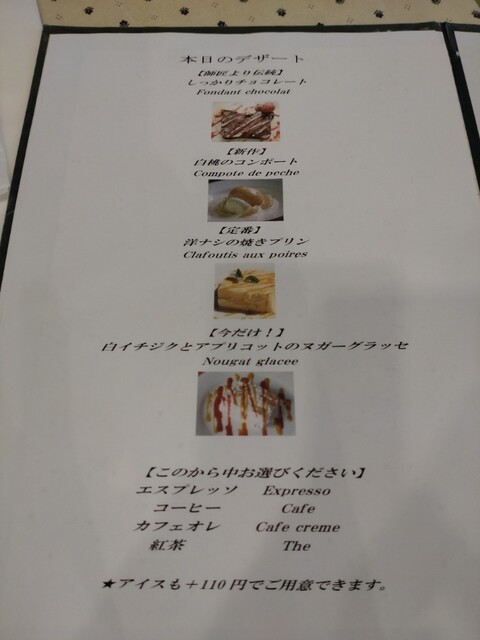 本日のデザート
【師匠より伝統】
しっかりチョコレート
Fondant chocolat
【新作】
白桃のコンポート
Compote de peche
【定番】
洋ナシの焼きプリン
Clafoutis aux poires
【今だけ！】
白イチジクとアプリコットのヌガーグラッセ
Nougat glacee
【このから中お選びください】
エスプレッソ Expresso
コーヒー Cafe
カフェオレ Cafe creme
紅茶 The
★アイスも＋110円でご用意できます。